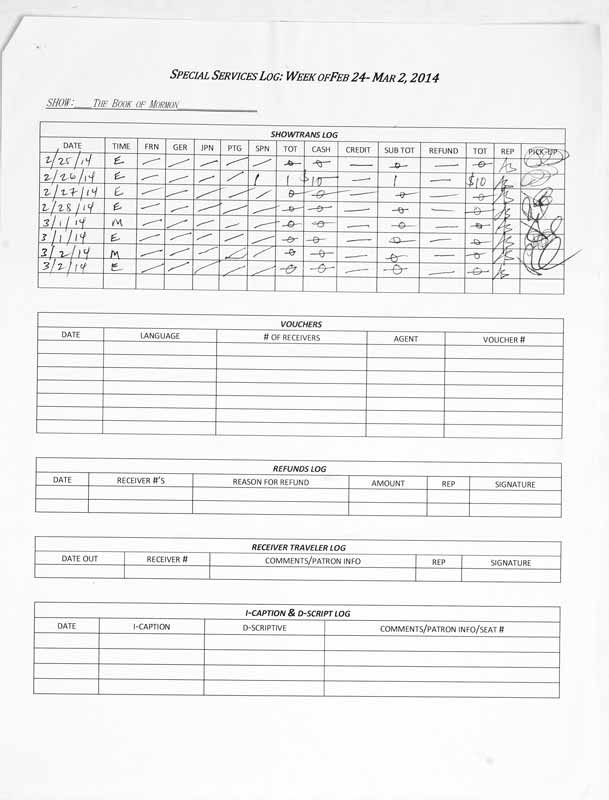 SPECIAL SERVICES LOG: WEEK OFFEB 24- MAR 2, 2014
SHOW:___THE BOOK OF MORMON
SHOWTRANS LOG
DATE TIME FRN GER JPN PTG SPN TOT CASH CREDIT SUB TOT REFUND TOT REP PICK-UP
2/25/14 E — — — — — 0 0 — 0 — 0
2/26/14 E — — — — 1 1 $10 — 1 — $10
2/27/14 E — — — — — 0 0 — 0 — 0
2/28/14 E — — — — — 0 0 — 0 — 0
3/1/14 M — — — — — 0 0 — 0 — 0
3/1/14 E — — — — — 0 0 — 0 — 0
3/2/14 M — — — — — 0 0 — 0 — 0
3/2/14 E — — — — — 0 0 — 0 — 0
VOUCHERS
DATE LANGUAGE # OF RECEIVERS AGENT VOUCHER #
REFUNDS LOG
DATE RECEIVER #'S REASON FOR REFUND AMOUNT REP SIGNATURE
RECEIVER TRAVELER LOG
DATE OUT RECEIVER # COMMENTS/PATRON INFO REP SIGNATURE
I-CAPTION & D-SCRIPT LOG
DATE I-CAPTION D-SCRIPTIVE COMMENTS/PATRON INFO/SEAT #